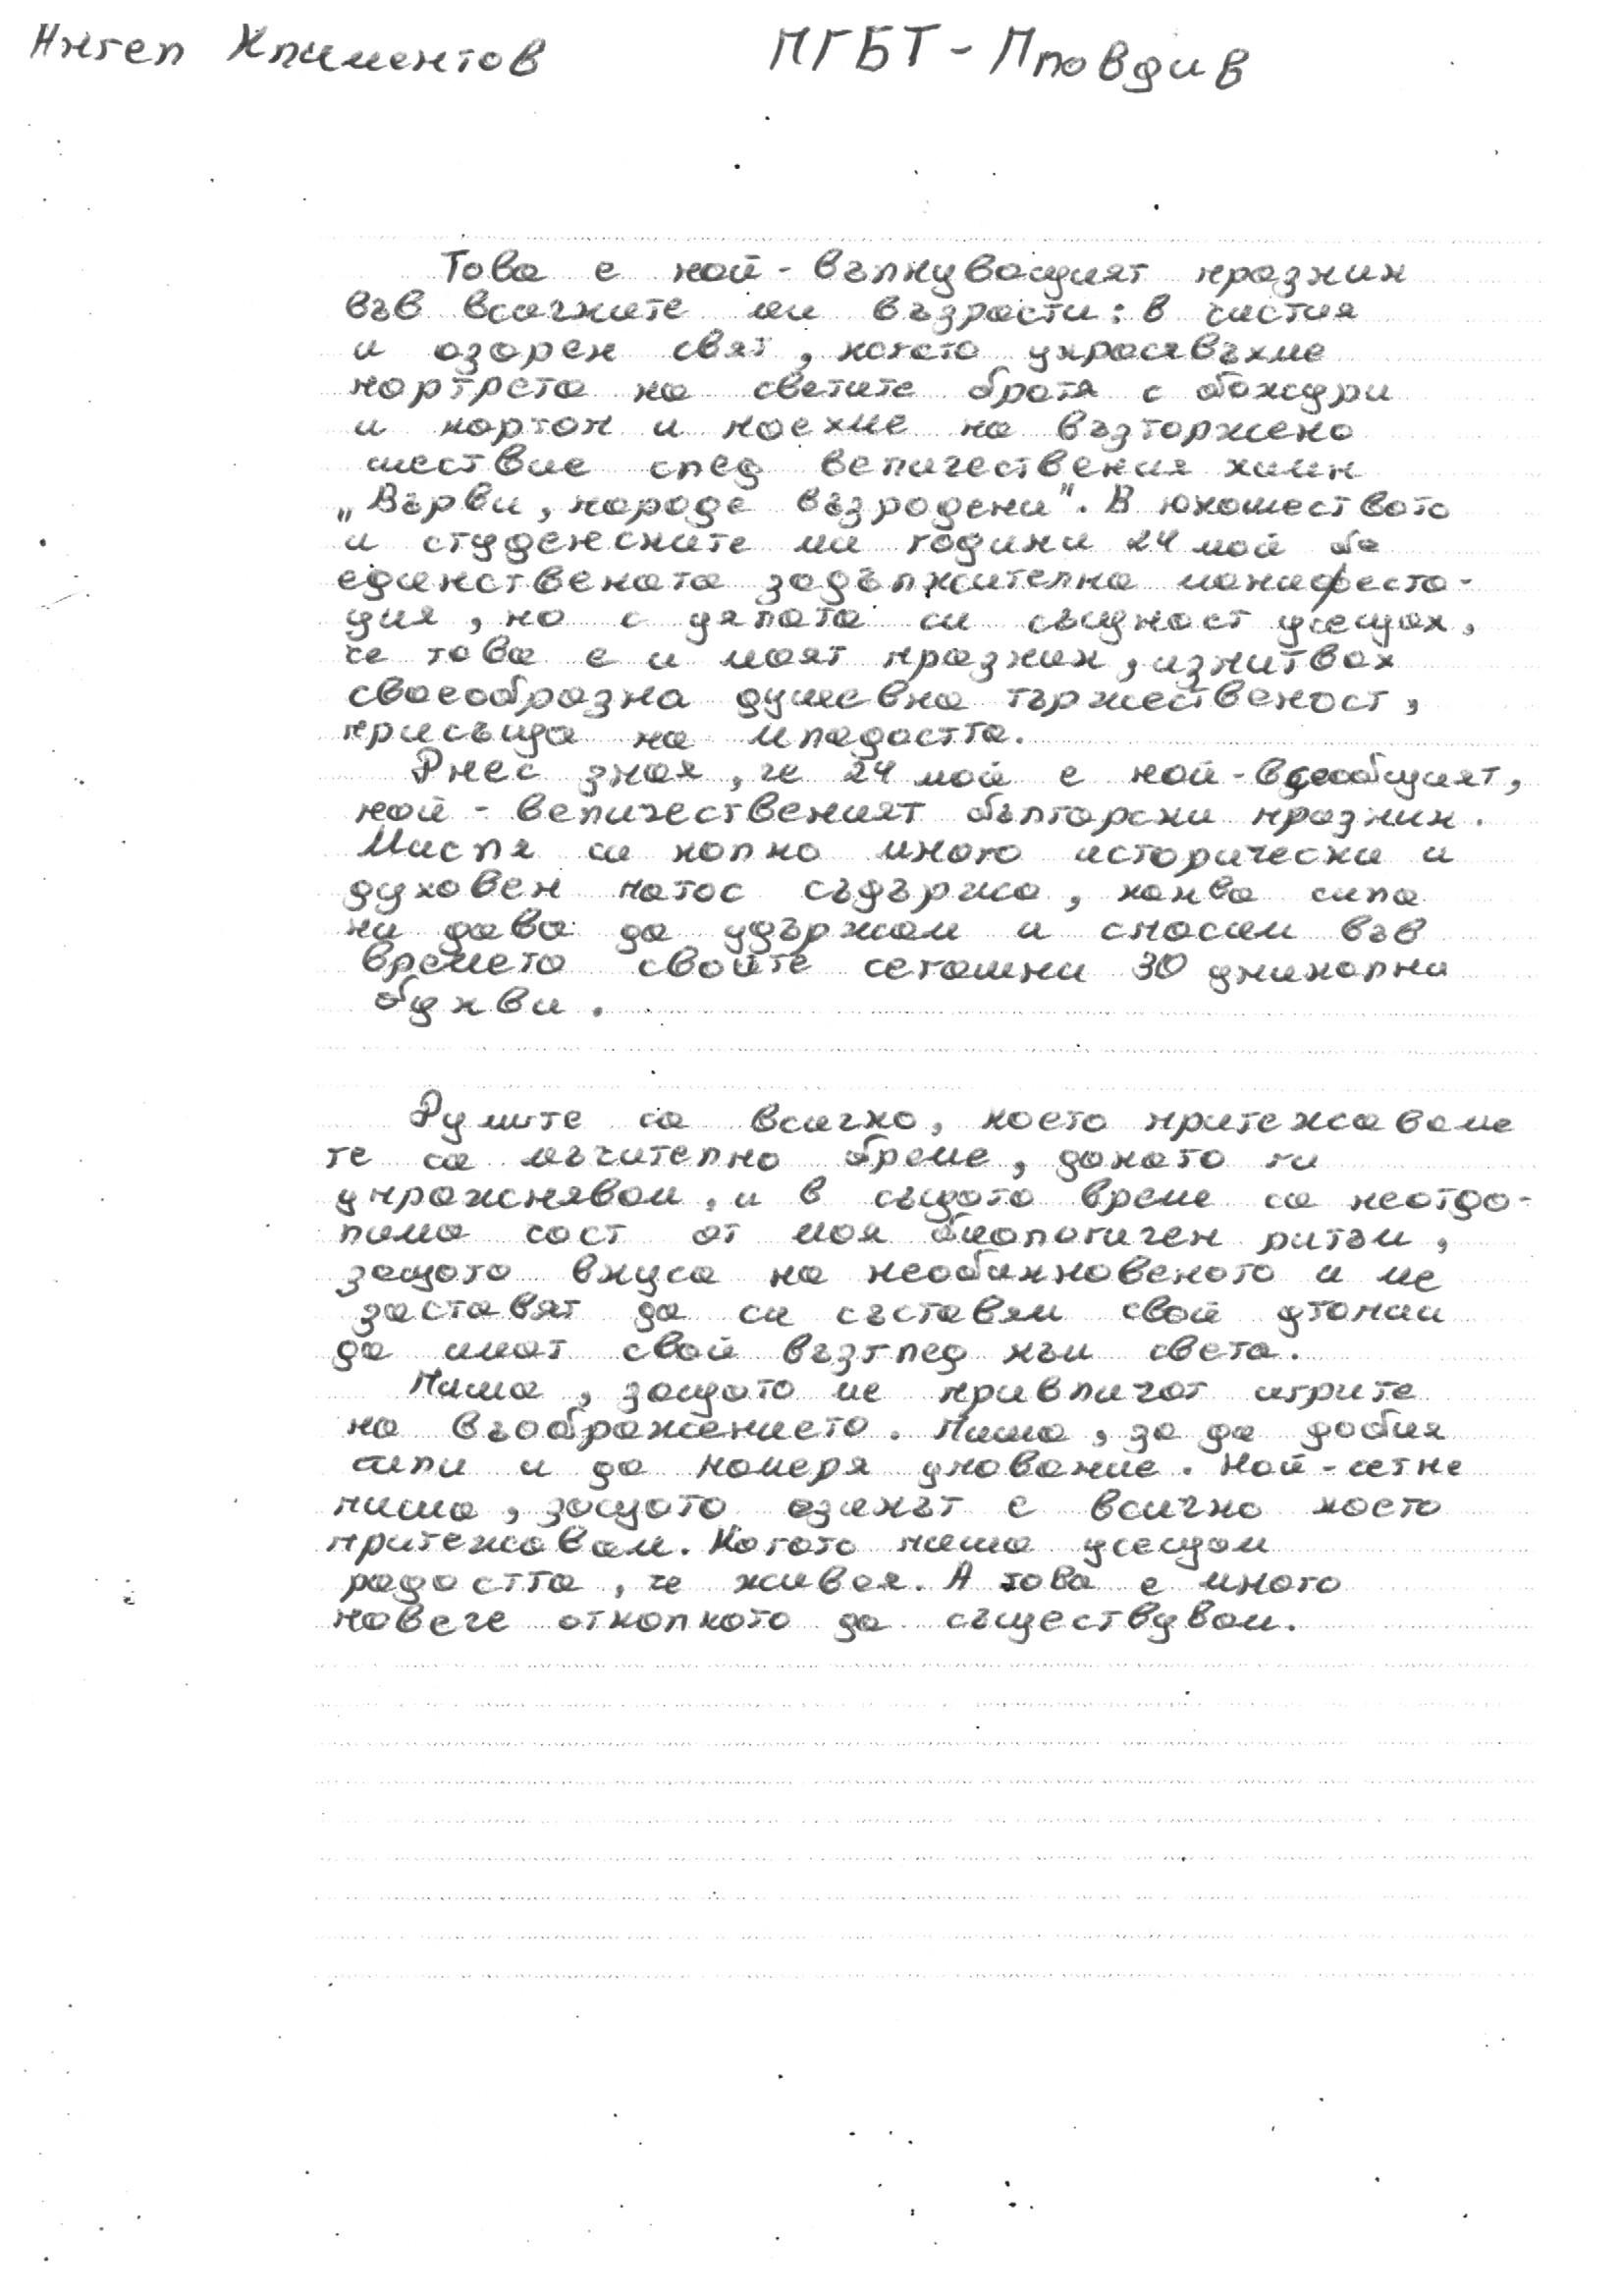 Ангел Климентов ПГБТ - Пловдив
Това е най - вълнуващият празник
във всичките ми възрасти: в чистия
и озарен свят, когато украсявъхме
портрета на светите братя с божури
и картон и поехме на възторжено
шествие след величествения химн
„Върви, народе възродени". В юношеството
и студенските ми години 24 май бе
единствената задължителна манифеста-
ция, но с цялата си същност усещах,
че това е и моят празник, изпитвах
своеобразна душевна тържественост,
присъща на младостта.
Днес зная, че 24 май е най - всеобщият,
най - величественият български празник.
Мисля си колко много исторически и
духовен патос съдържа, каква сила
ни дава да удържам и спасим във
времето своите сегашни 30 уникални
букви.
Думите са всичко, което притежаваме
те са мъчително бреме, докато ги
упражнявам, и в същото време са неотдо-
лима част от моя биологичен ритъм,
защото вкуса на необикновеното и ме
заставят да си съставям свой утопии
да имат свой възглед към света.
Пиша, защото ме привличат игрите
на въображението. Пиша, за да добия
сили и да намеря упование. Най - сетне
пиша, защото езикът е всичко което
притежавам. Когато пиша усещам
радостта, че живея. А това е много
повече отколкото да съществувам.